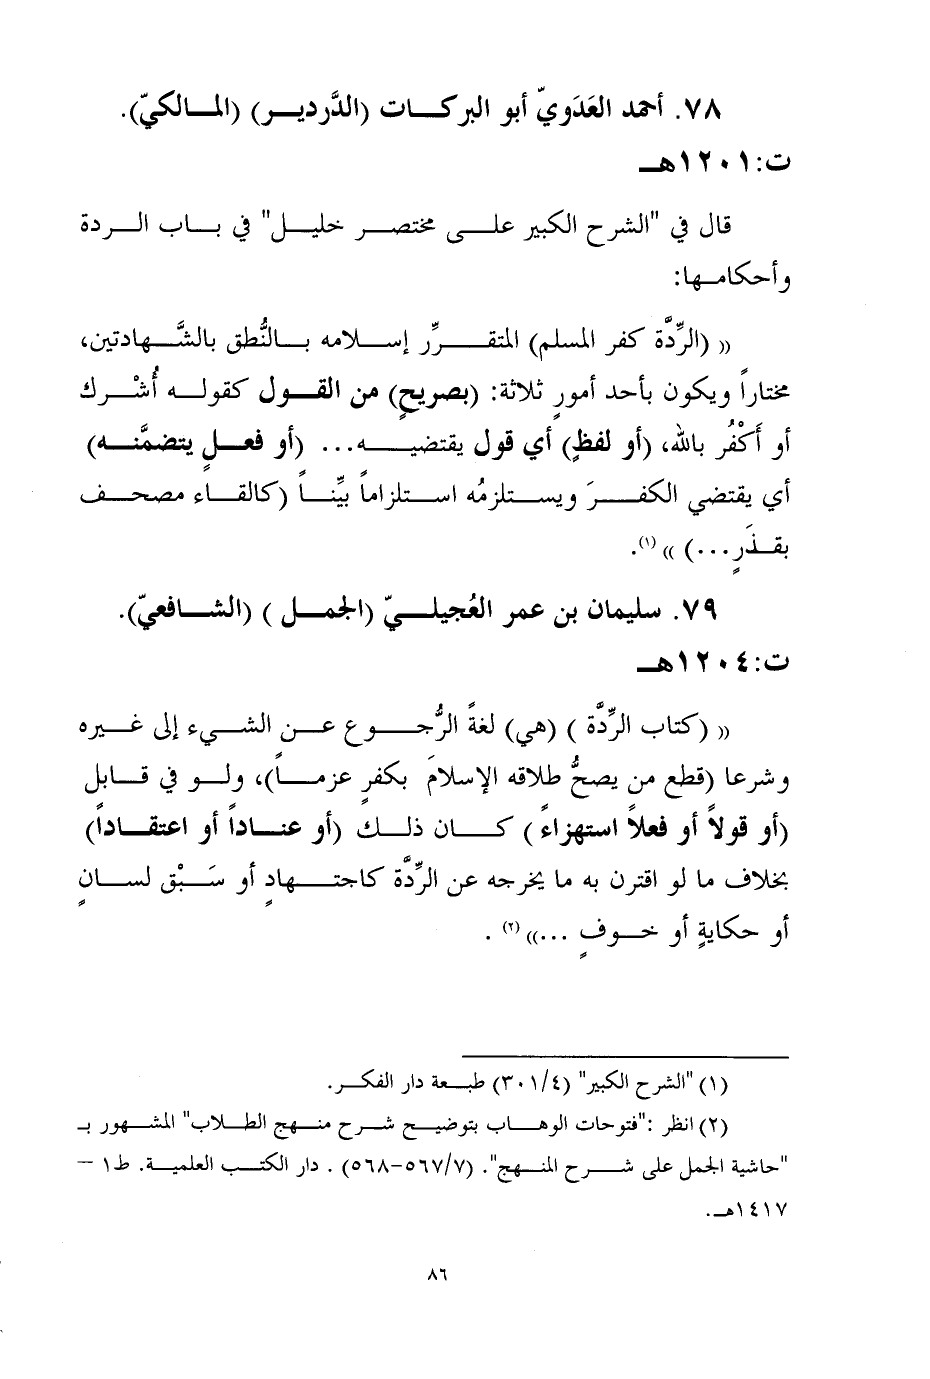 ٧٨. أحمد العَدَويّ أبو البركـات (الدَّرديـر) (المـالكيّ).
ت:١٢٠١هـ
قال في "الشرح الكبير علـى مختصـر خليـل" في بـاب الـردة
وأحكامـها:
(( (الرِّدَّة كفر المسلم) المتقـرِّر إسـلامه بـالنُّطق بالشَّـهادتين،
مختاراً ويكون بأحد أمورٍ ثلاثة: (بصريحٍ) من القـول كقولـه أُشْـرك
أو أَكْفُر بالله، (أو لفظٍ) أي قول يقتضيـه... (أو فعـلٍ يتضمَّنـه)
أي يقتضي الكفـرَ ويسـتلزمُه اسـتلزاماً بيِّنـاً (كالقـاء مصحـف
بقـذَرٍ...) )) (١).
٧٩. سليمان بن عمر العُجيلـيّ (الجمـل ) (الشـافعيّ).
ت:١٢٠٤هـ
(( (كتاب الرِّدَّة ) (هي) لغةً الرُّجـوع عـن الشـيء إلى غـيره
وشرعا (قطع من يصحُّ طلاقه الإسلامَ بكفرٍ عزمـاً)، ولـو في قـابل
(أو قولاً أو فعلاً استهزاءً ) كـان ذلـك (أو عنـاداً أو اعتقـاداً)
بخلاف ما لو اقترن به ما يخرجه عن الرِّدَّة كاجتـهادٍ أو سَـبْق لسـانٍ
أو حكايةٍ أو خـوفٍ ...)) (٢) .
(١) "الشرح الكبير" (٣٠١/٤) طبـعة دار الفكـر.
(٢) انظر :"فتوحات الوهـاب بتوضيـح شـرح منـهج الطـلاب" المشـهور بـ
"حاشية الجمل على شـرح المنـهج". (٥٦٧/٧-٥٦٨) . دار الكتـب العلميـة. ط١ –
١٤١٧هـ.
٨٦